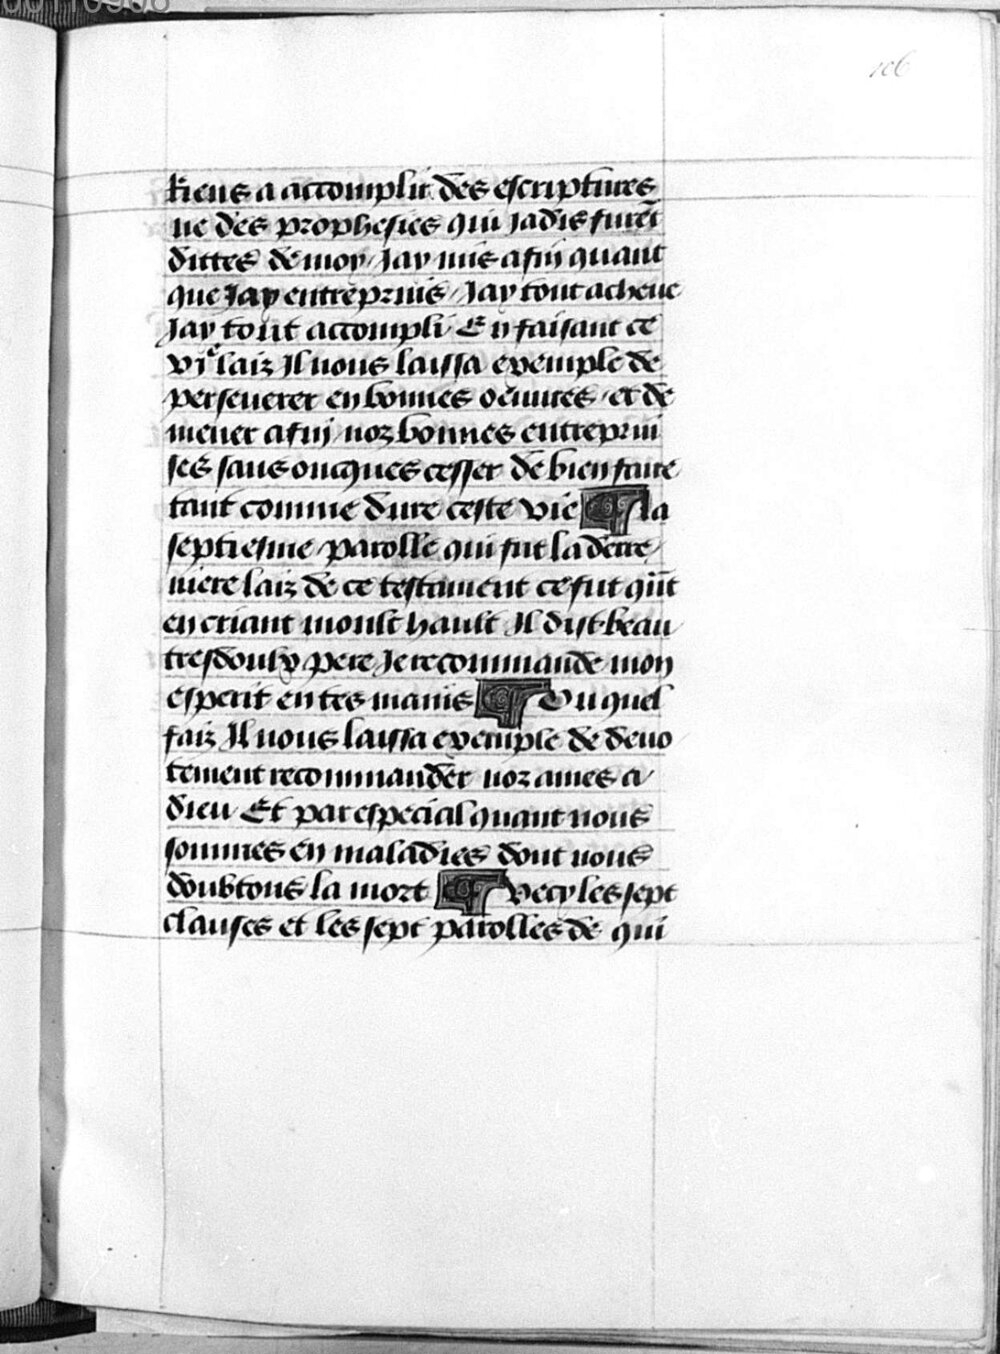 106
Riens a accomplir des escriptures
ne des prophesies qui jadis furẽt
dittes de moy / Jay mis a fin quant
que Jay entreprins / Jay tout acheue
Jay tout accompli En faisant ce
vjᵉ laiz Il nous laissa exemple de
perseuerer en bonnes oeuures / et de
mener a fin noz bonnes entreprin
ses sans oncques cesser de bien faire
tant comme dure ceste vie ¶ la
septiesme parolle qui fut la derre
niere laiz de ce testament ce fut qũt
en criant moult hault Il dist beau
tresdoulx pere Je recommande mon
esperit en tes mains ¶ Ou quel
faiz Il nous laissa exemple de deuo
tement recommander noz ames a
dieu Et par especial quant nous
sommes en maladies dont nous
doubtons la mort ¶ vecy les sept
clauses et les sept parolles de qui